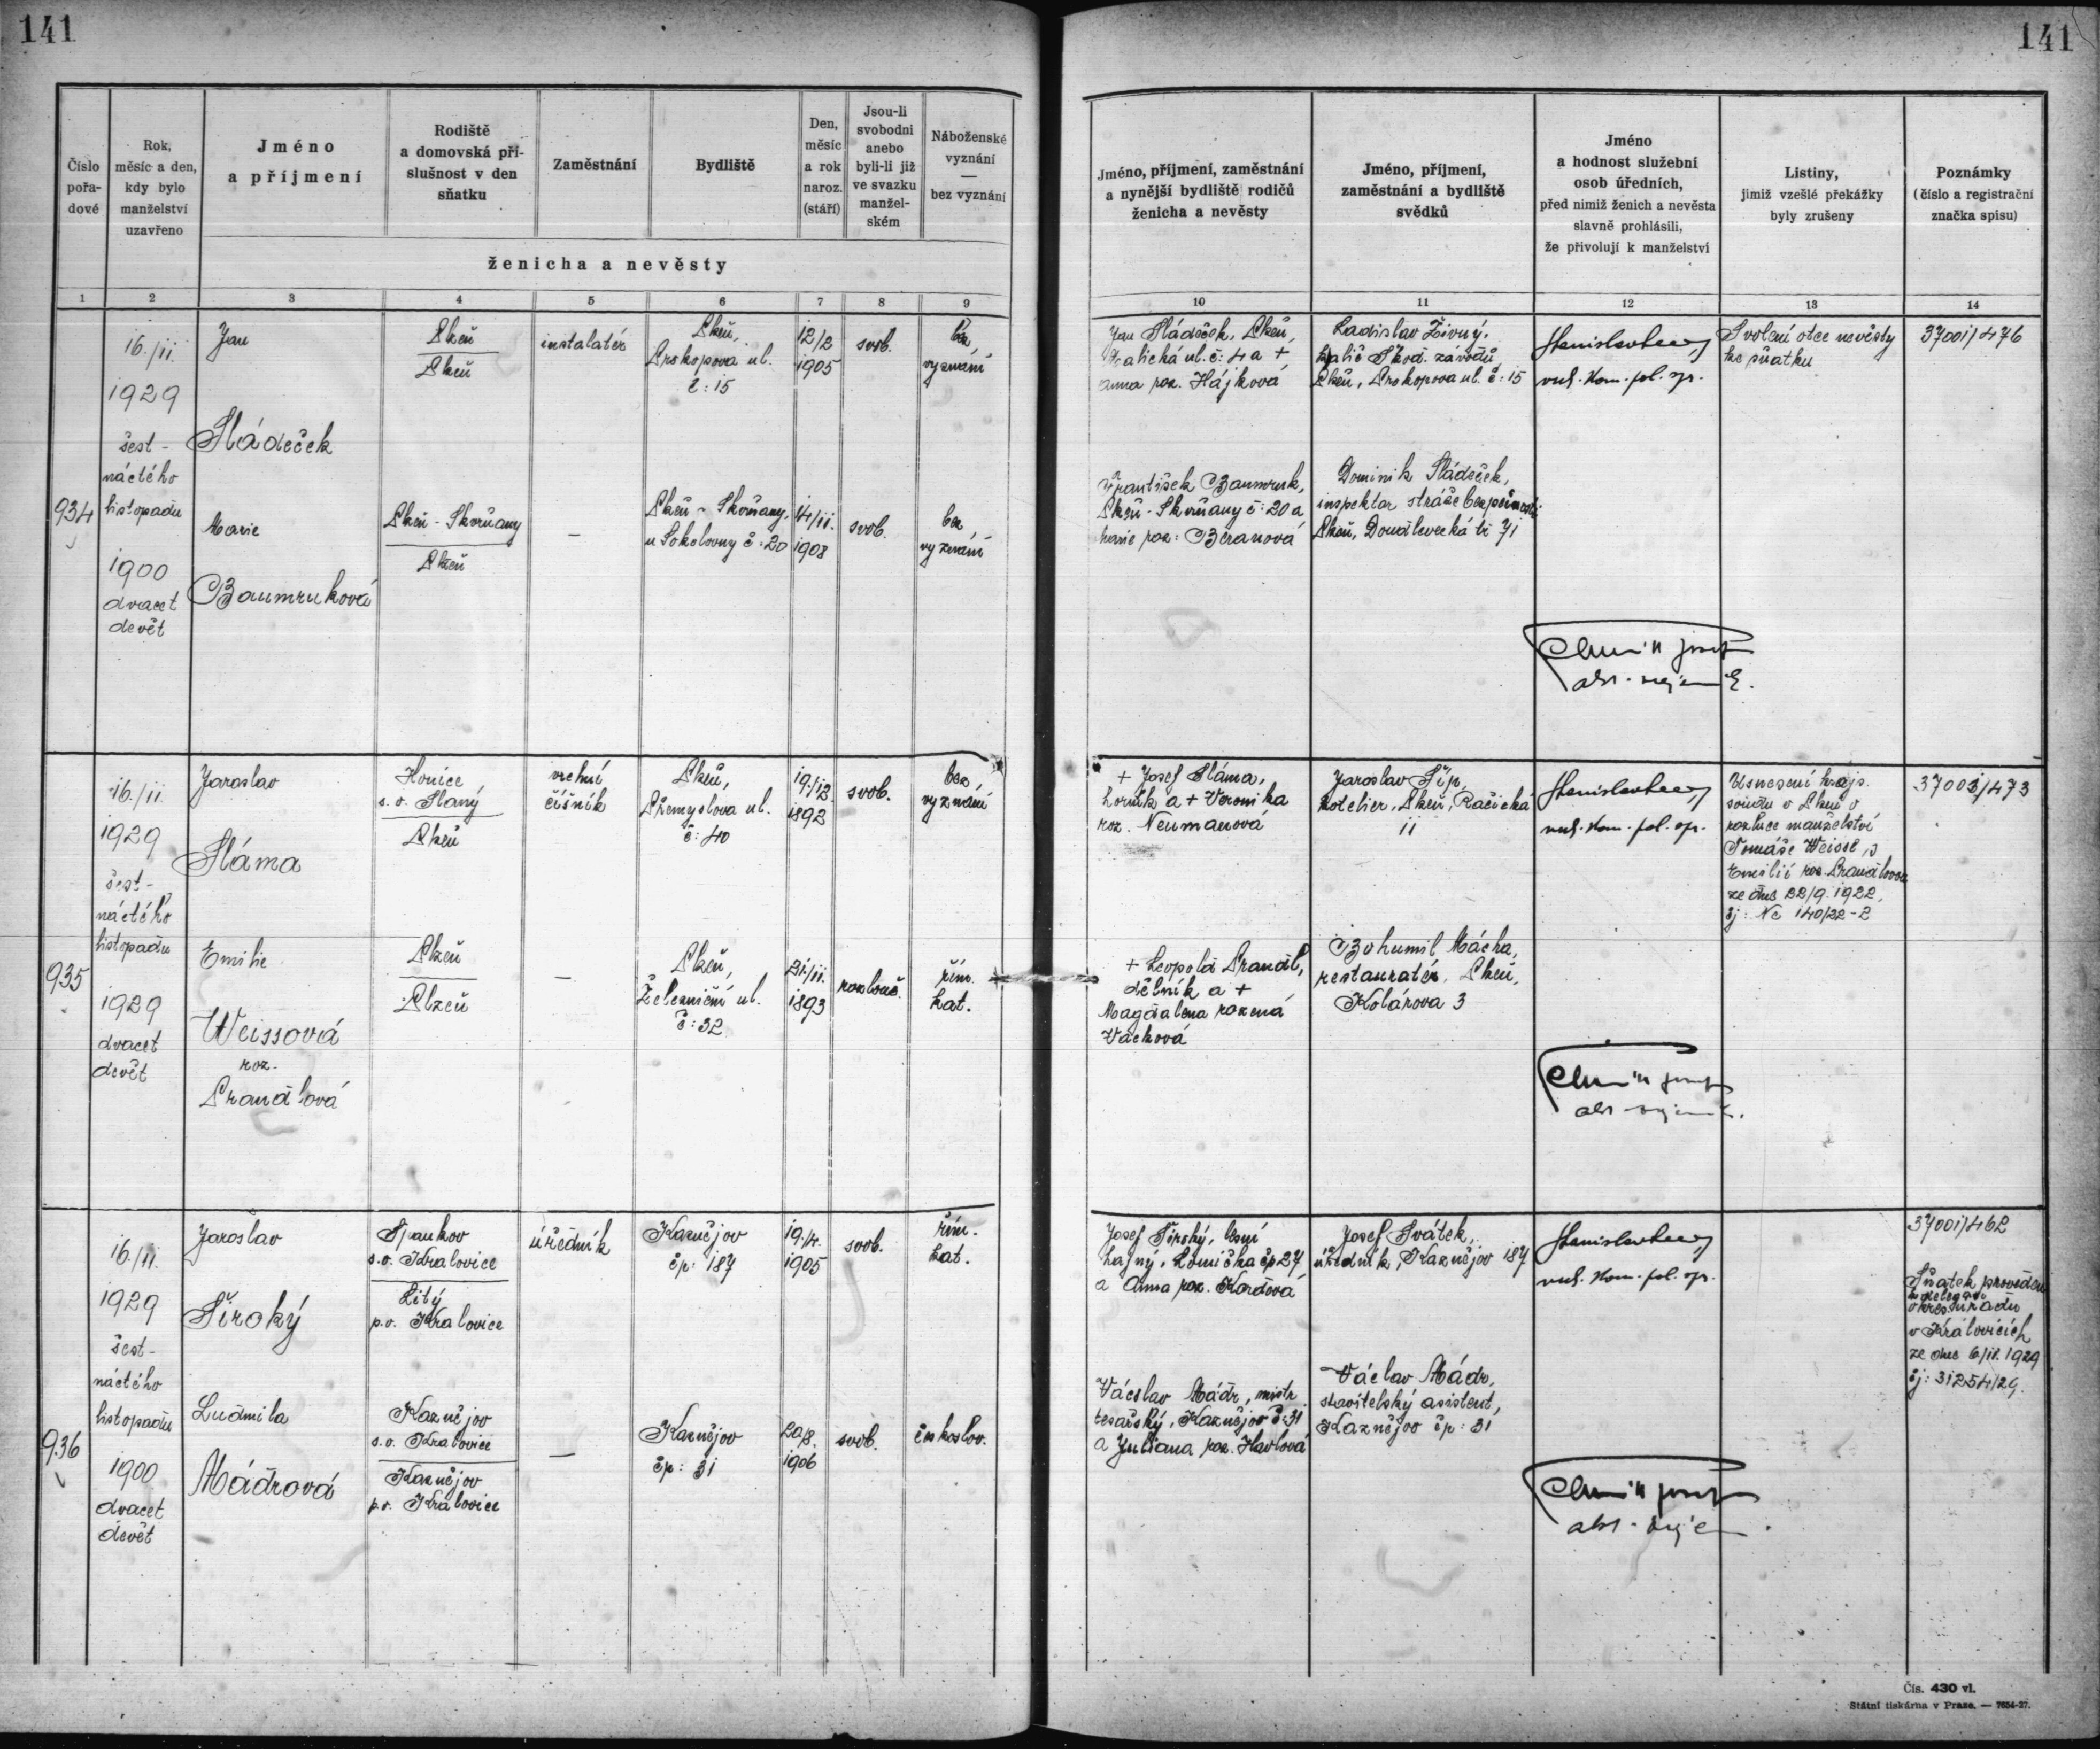 141
141
Číslo
pořa-
dové
Rok,
měsíc a den,
kdy bylo
manželství
uzavřeno
Jméno
a příjmení
Rodiště
a domovská pří-
slušnost v den
sňatku
Zaměstnání
Bydliště
Den,
měsíc
a rok
naroz.
(stáří)
Jsou-li
svobodni
anebo
byli-li již
ve svazku
manžel-
ském
Náboženské
vyznání
—
bez vyznání
ženicha a nevěsty
Jméno, příjmení, zaměstnání
a nynější bydliště rodičů
ženicha a nevěsty
Jméno, příjmení,
zaměstnání a bydliště
svědků
Jméno
a hodnost služební
osob úředních,
před nimiž ženich a nevěsta
slavně prohlásili,
že přivolují k manželství
Listiny,
jimiž vzešlé překážky
byly zrušeny
Poznámky
(číslo a registrační
značka spisu)
1 2 3 4 5 6 7 8 9
10 11 12 13 14
934
16./11.
1929
šest-
náctého
listopadu
1900
dvacet
devět
Jan
Sládeček
Plzeň
Plzeň
instalatér
Plzeň,
Prokopova ul.
č: 15
12/2
1905
svob.
bez
vyznání
Marie
Baumruková
Plzeň - Skvrňany
Plzeň
—
Plzeň - Skvrňany,
u Sokolovny č: 20
14/11.
1908
svob.
bez
vyznání
Jan Sládeček, Plzeň,
ul. č: 4 a +
Anna roz. Hájková
František Baumruk,
Plzeň - Skvrňany č: 20 a
Marie roz: Beranová
Ladislav Živný,
Škod. závodů
Plzeň, Prokopova ul. č: 15
Dominik Sládeček,
inspektor stráže bezpečnosti
Plzeň, Doudlevecká tř. 71
pol. spr.
Svolení otce nevěsty
ke sňatku
37001/476
935
16./11.
1929
šest-
náctého
listopadu
1929
dvacet
devět
Jaroslav
Sláma
Honice
s. o. Slaný
Plzeň
vrchní
číšník
Plzeň,
Přemyslova ul.
č: 40
19./12.
1892
svob.
bez
vyznání
Emilie
Weissová
roz.
Prandlová
Plzeň
Plzeň
—
Plzeň,
Železniční ul.
č: 32
21/11.
1893
rozlouč.
řím.
kat.
+ Josef Sláma,
horník a + Veronika
roz. Neumanová
+ Leopold Prandl,
dělník a +
Magdalena rozená
Vacková
Jaroslav Šíp,
hotelier, Plzeň, Račická
11
Bohumil Mácha,
restauratér, Plzeň,
Kolárova 3
pol. spr.
Usnesení krajs.
soudu v Plzni o
rozluce manželství
Tomáše Weisse s
Emilií roz. Prandlovou
ze dne 22/9. 1922,
čj: Nc 140/22-2
37003/473
936
16./11.
1929
šest-
náctého
listopadu
1900
dvacet
devět
Jaroslav
Široký
s. o. Kralovice
Litý
p. o. Kralovice
úředník
Kaznějov
čp: 187
19./4.
1905
svob.
řím.
kat.
Ludmila
Mádrová
Kaznějov
s. o. Kralovice
Kaznějov
p. o. Kralovice
—
Kaznějov
čp: 31
20/8.
1906
svob.
českoslov.
Josef Široký, lesní
hajný, Lomička čp 27
a Anna roz.
Václav Mádr, mistr
tesařský, Kaznějov č: 31
a Juliana roz. Havlová
Josef Svátek,
úředník, Kaznějov 187
Václav Mádr,
stavitelský asistent,
Kaznějov čp: 31
pol. spr.
37001/462
Sňatek proveden
z delegací
okres. úřadu
v Kralovicích
ze dne 6/11. 1929
čj: 31254/29.
Čís. 430 vl.
Státní tiskárna v Praze. — 7654-27.